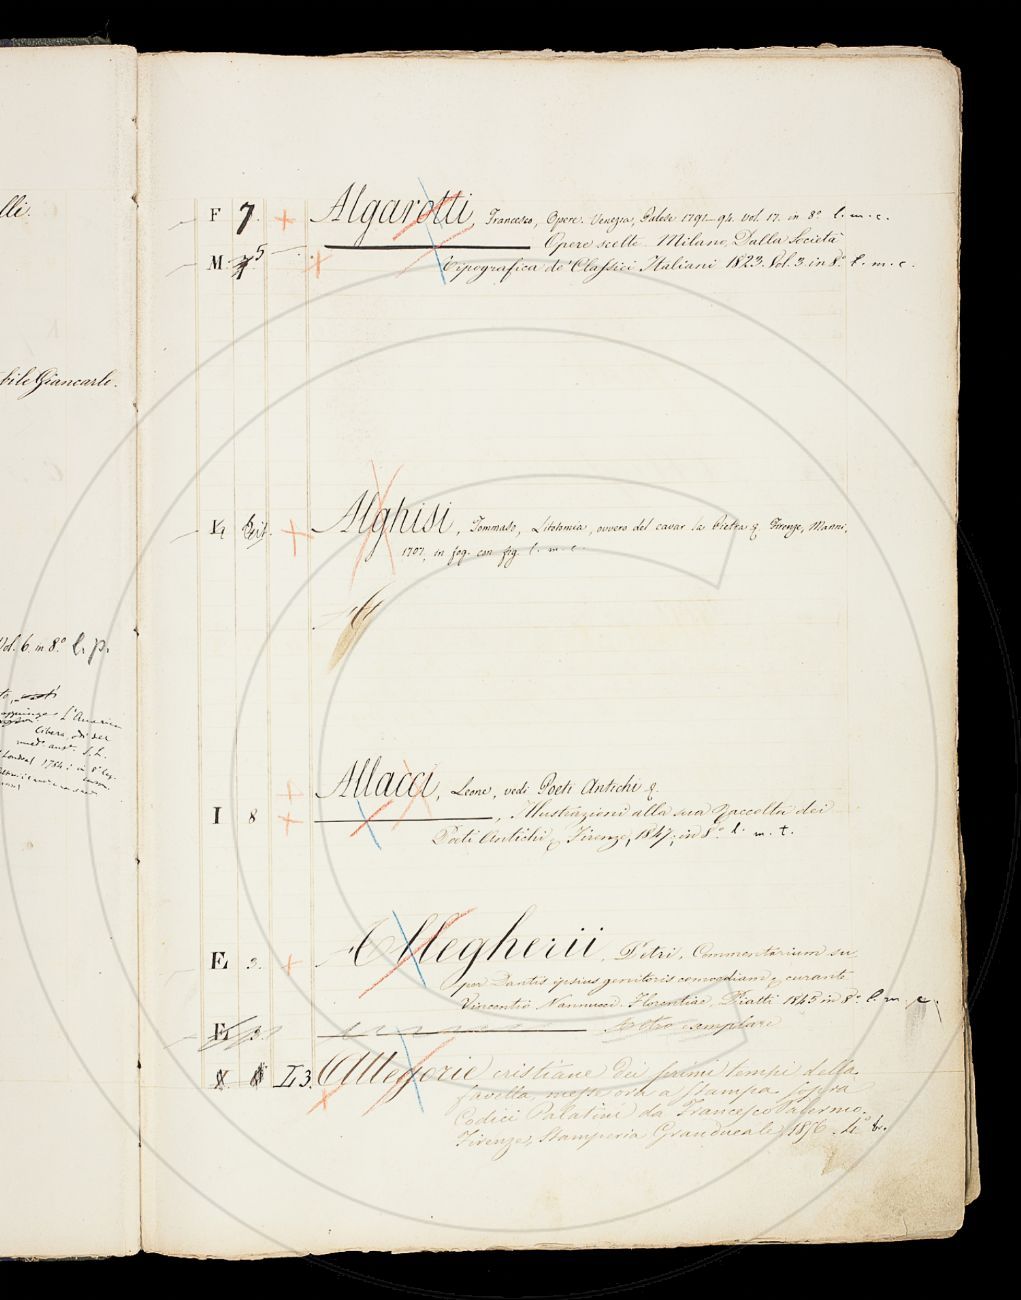 lli.
F 7. Algarotti, Francesco, Opere. Venezia, Palese 1791-94. Vol. 17. in 8.° l. m. c.
Opere scelte. Milano, Dalla Società
M. 5 Tipografica de' Classici Italiani 1823. Vol. 3. in 8.° l. m. c.
bile Giancarlo.
Alghisi, Tommaso, Litotomia, ovvero del cavar la Pietra &. Firenze, Manni,
1707, in fog. con fig. l. m. c.
Vol. 6. in 8.° l. p.
Allacci, Leone, vedi Poeti Antichi &.
I 8 Illustrazioni alla sua Raccolta dei
Poeti Antichi & Firenze, 1847, in 8.° l. m. t.
E 3. Allegherii, Petri, Commentarium su
per Dantis ipsius genitoris comoediam & curante
Vincentio Nannucci. Florentiae, Piatti 1845 in 8.° l. m. c.
E 3 Altro esemplare
I 3. Allegorie cristiane dei primi tempi della
favella, messe ora a stampa sopra
Codici Palatini da Francesco Palermo.
Firenze, Stamperia Granducale, 1856. 4.° b.